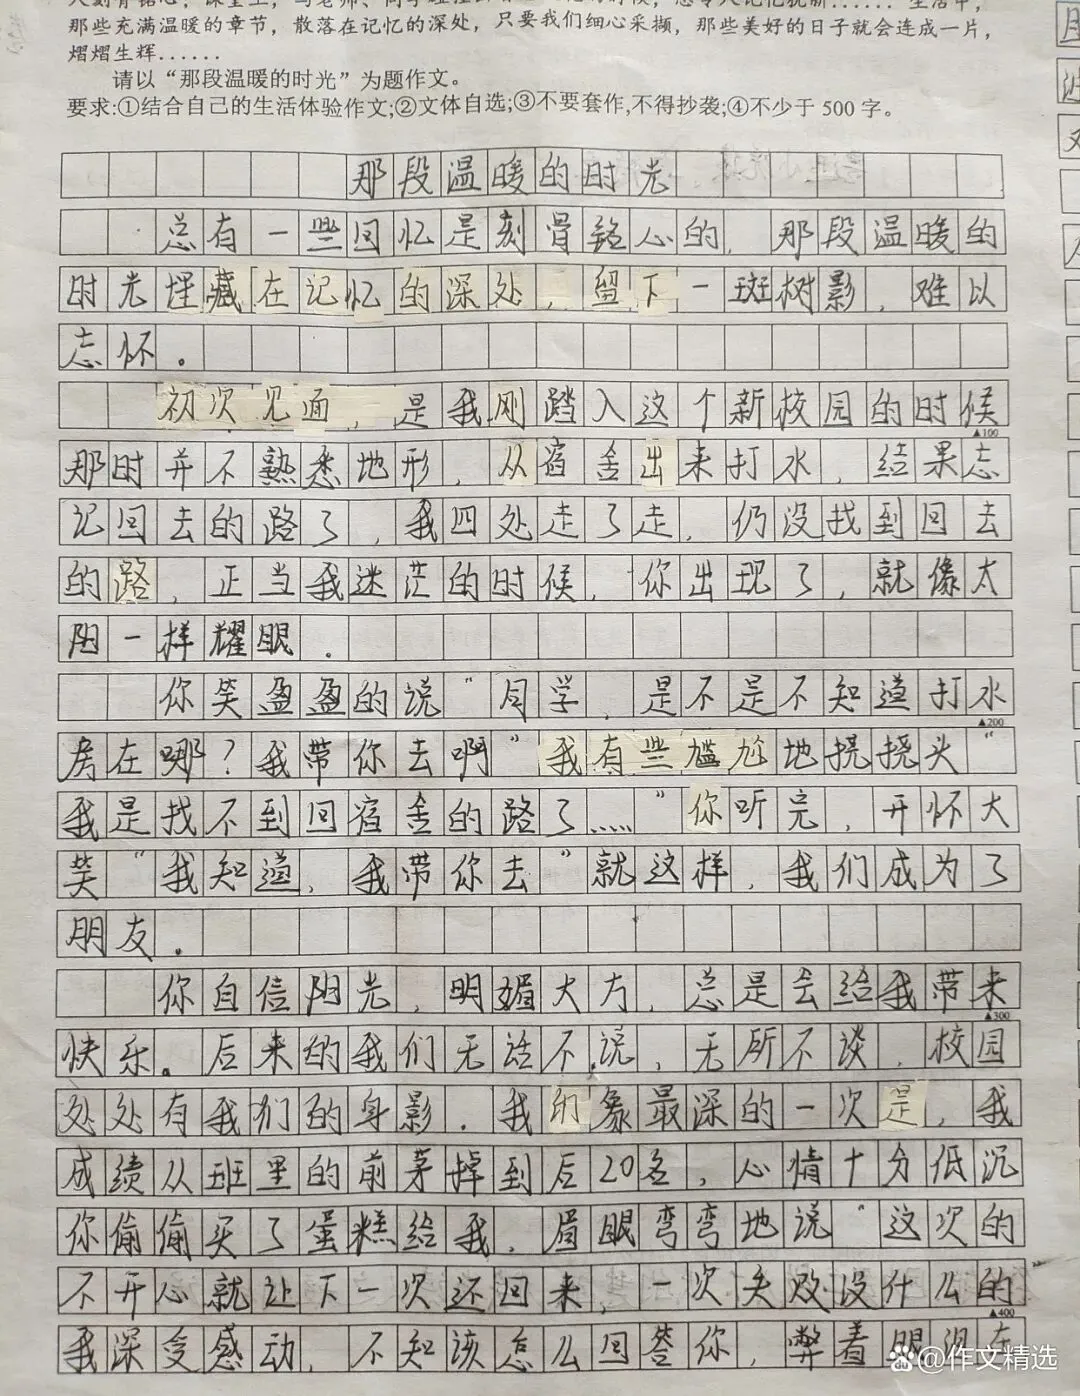 那些充满温暖的章节，散落在记忆的深处，只要我们细心采撷，那些美好的日子就会连成一片，
熠熠生辉……
请以“那段温暖的时光”为题作文。
要求:①结合自己的生活体验作文;②文体自选;③不要套作,不得抄袭;④不少于 500 字。
那段温暖的时光
总有一些回忆是刻骨铭心的，那段温暖的
时光埋藏在记忆的深处，留下一斑树影，难以
忘怀。
初次见面，是我刚踏入这个新校园的时候
▲100
那时并不熟悉地形，从宿舍出来打水，结果忘
记回去的路了，我四处走了走，仍没找到回去
的路，正当我迷茫的时候，你出现了，就像太
阳一样耀眼．
你笑盈盈的说“同学，是不是不知道打水
▲200
房在哪？我带你去啊”我有些尴尬地挠挠头“
我是找不到回宿舍的路了……”你听完，开怀大
笑“我知道，我带你去”就这样，我们成为了
朋友。
你自信阳光，明媚大方，总是会给我带来
▲300
快乐。后来的我们无话不说，无所不谈，校园
处处有我们的身影．我印象最深的一次是，我
成绩从班里的前茅掉到后20名，心情十分低沉
你偷偷买了蛋糕给我，眉眼弯弯地说“这次的
不开心就让下一次还回来，一次失败没什么的
▲400
我深受感动，不知该怎么回答你，弊着眼泪在
@作文精选